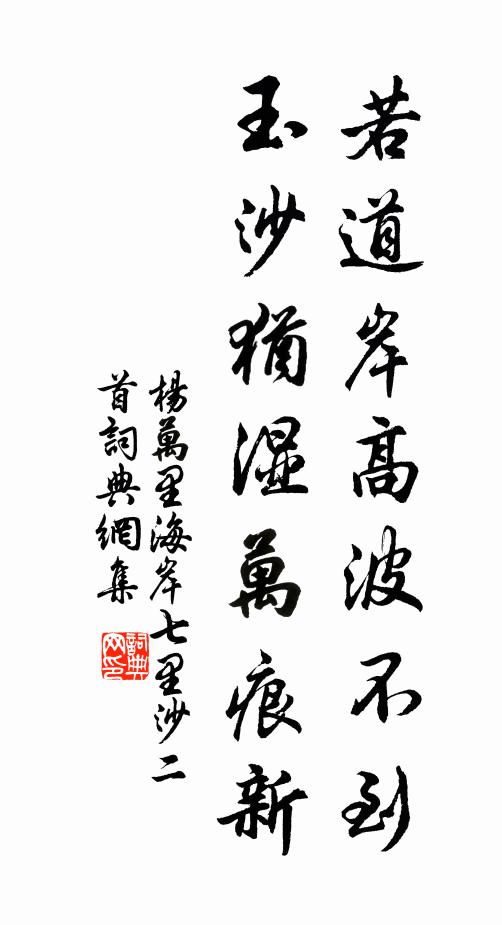 若道岸高波不到
玉沙猶湿萬痕新
楊萬里海岸七里沙二
首詞典網集
詞典网印